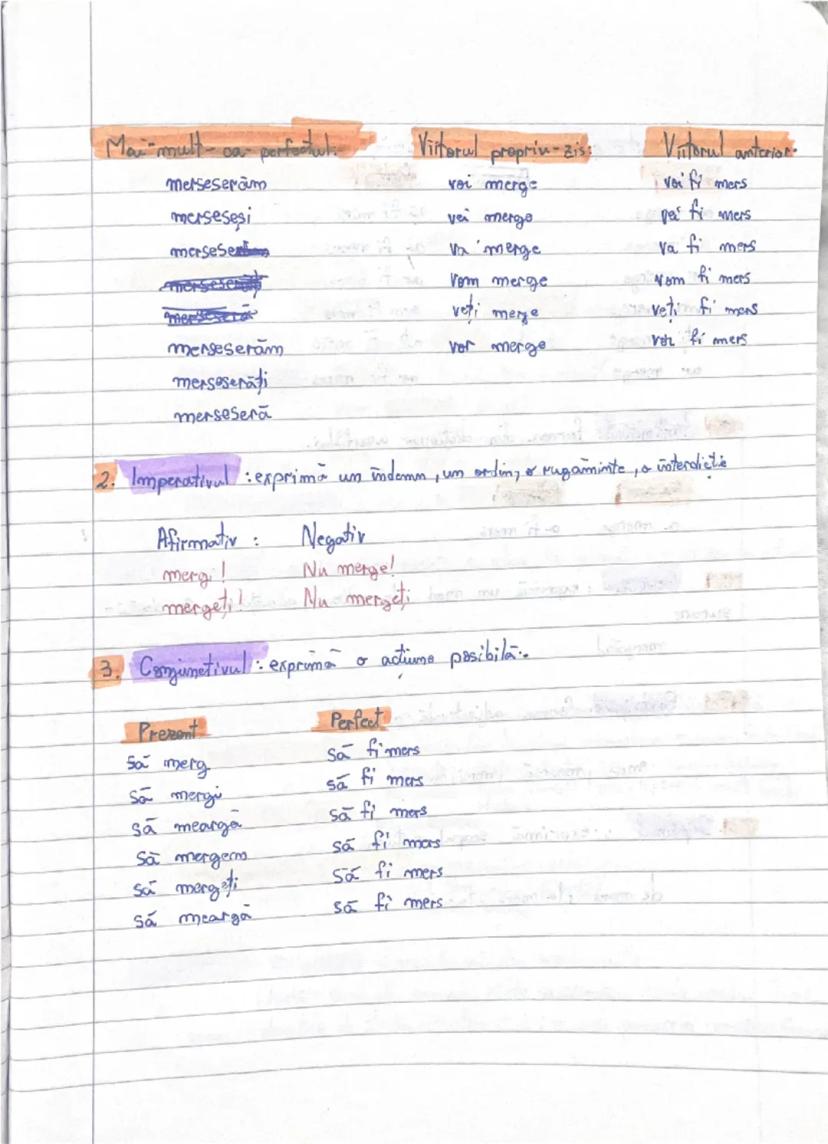 Mai-mult-ca-perfectul: Viitorul propriu-zis: Viitorul anterior:
merseserăm voi merge voi fi mers
merseseși vei merge vei fi mers
mersese va merge va fi mers
vom merge vom fi mers
veți merge veți fi mers
merseserăm vor merge vor fi mers
merseserăți
merseseră
2. Imperativul : exprimă un îndemn, un ordin, o rugăminte, o interdicție
Afirmativ : Negativ
mergi! Nu merge!
mergeți! Nu mergeți
3. Conjunctivul : exprimă o acțiune posibilă:
Prezent Perfect
să merg să fi mers
să mergi să fi mers
să meargă să fi mers
să mergem să fi mers
să mergeți să fi mers
să meargă să fi mers